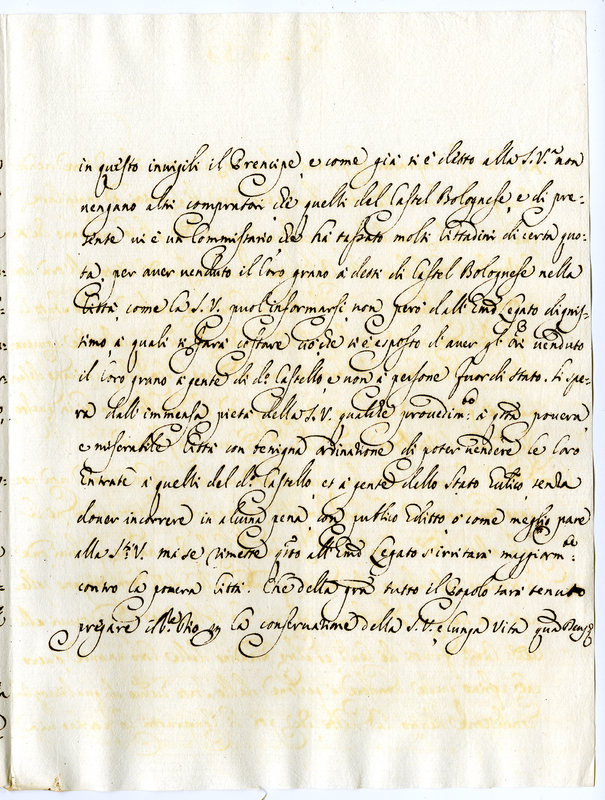 in questo invigili il Prencipe, e come già si è detto alla S.V.ª non
vengano altri compratori che quelli del Castel Bolognese, e di pre-
sente vi è un Commissario, che ha tassato molti Cittadini di certa quo-
ta, per aver venduto il loro grano à detti di Castel Bolognese nella
Città, come la S.V. puol informarsi, non però dall' Emõ Legato dignis-
simo, à quali si farà costare ciò, che si è esposto d'aver gl' venduto
il loro grano à gente di dº Castello, e non à persone fuor di stato. Si spe-
ra dall' immensa pietà della S.V. qualche provedim.to à povera,
e miserabile Città con benigna ordinazione di poter vendere le loro
Entrate à quelli del dº Castello, et à gente dello Stato senza
dover incorrere in alcuna pena, con publico Editto, ò come meglio pare
alla S.tà V. mà se rimette all' Emõ Legato s'irritarà maggiorm.te
contro la povera Città. Che della tutto il Popolo sarà tenuto
pregare la conservatione della S.V. e lunga Vita